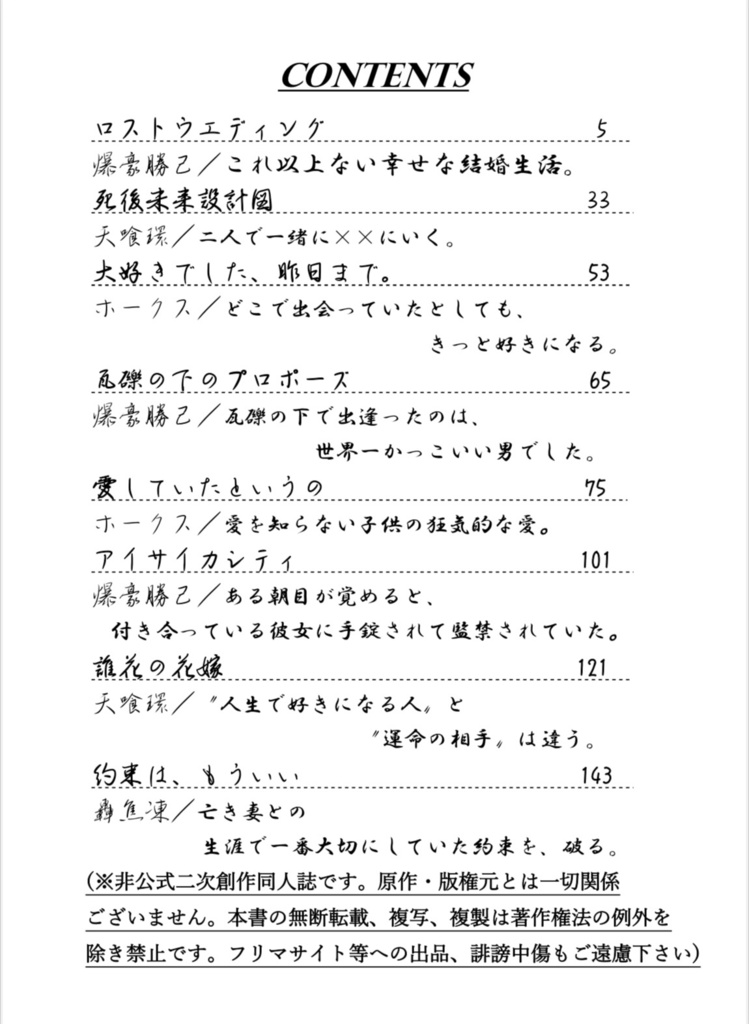 CONTENTS
ロストウエディング 5
爆豪勝己／これ以上ない幸せな結婚生活。
死後未来設計図 33
天喰環／二人で一緒に××にいく。
大好きでした、昨日まで。 53
ホークス／どこで出会っていたとしても、
きっと好きになる。
瓦礫の下のプロポーズ 65
爆豪勝己／瓦礫の下で出逢ったのは、
世界一かっこいい男でした。
愛していたというの 75
ホークス／愛を知らない子供の狂気的な愛。
アイサイカシティ 101
爆豪勝己／ある朝目が覚めると、
付き合っている彼女に手錠されて監禁されていた。
誰花の花嫁 121
天喰環／〝人生で好きになる人〟と
〝運命の相手〟は違う。
約束は、もういい 143
轟焦凍／亡き妻との
生涯で一番大切にしていた約束を、破る。
(※非公式二次創作同人誌です。原作・版権元とは一切関係
ございません。本書の無断転載、複写、複製は著作権法の例外を
除き禁止です。フリマサイト等への出品、誹謗中傷もご遠慮下さい)